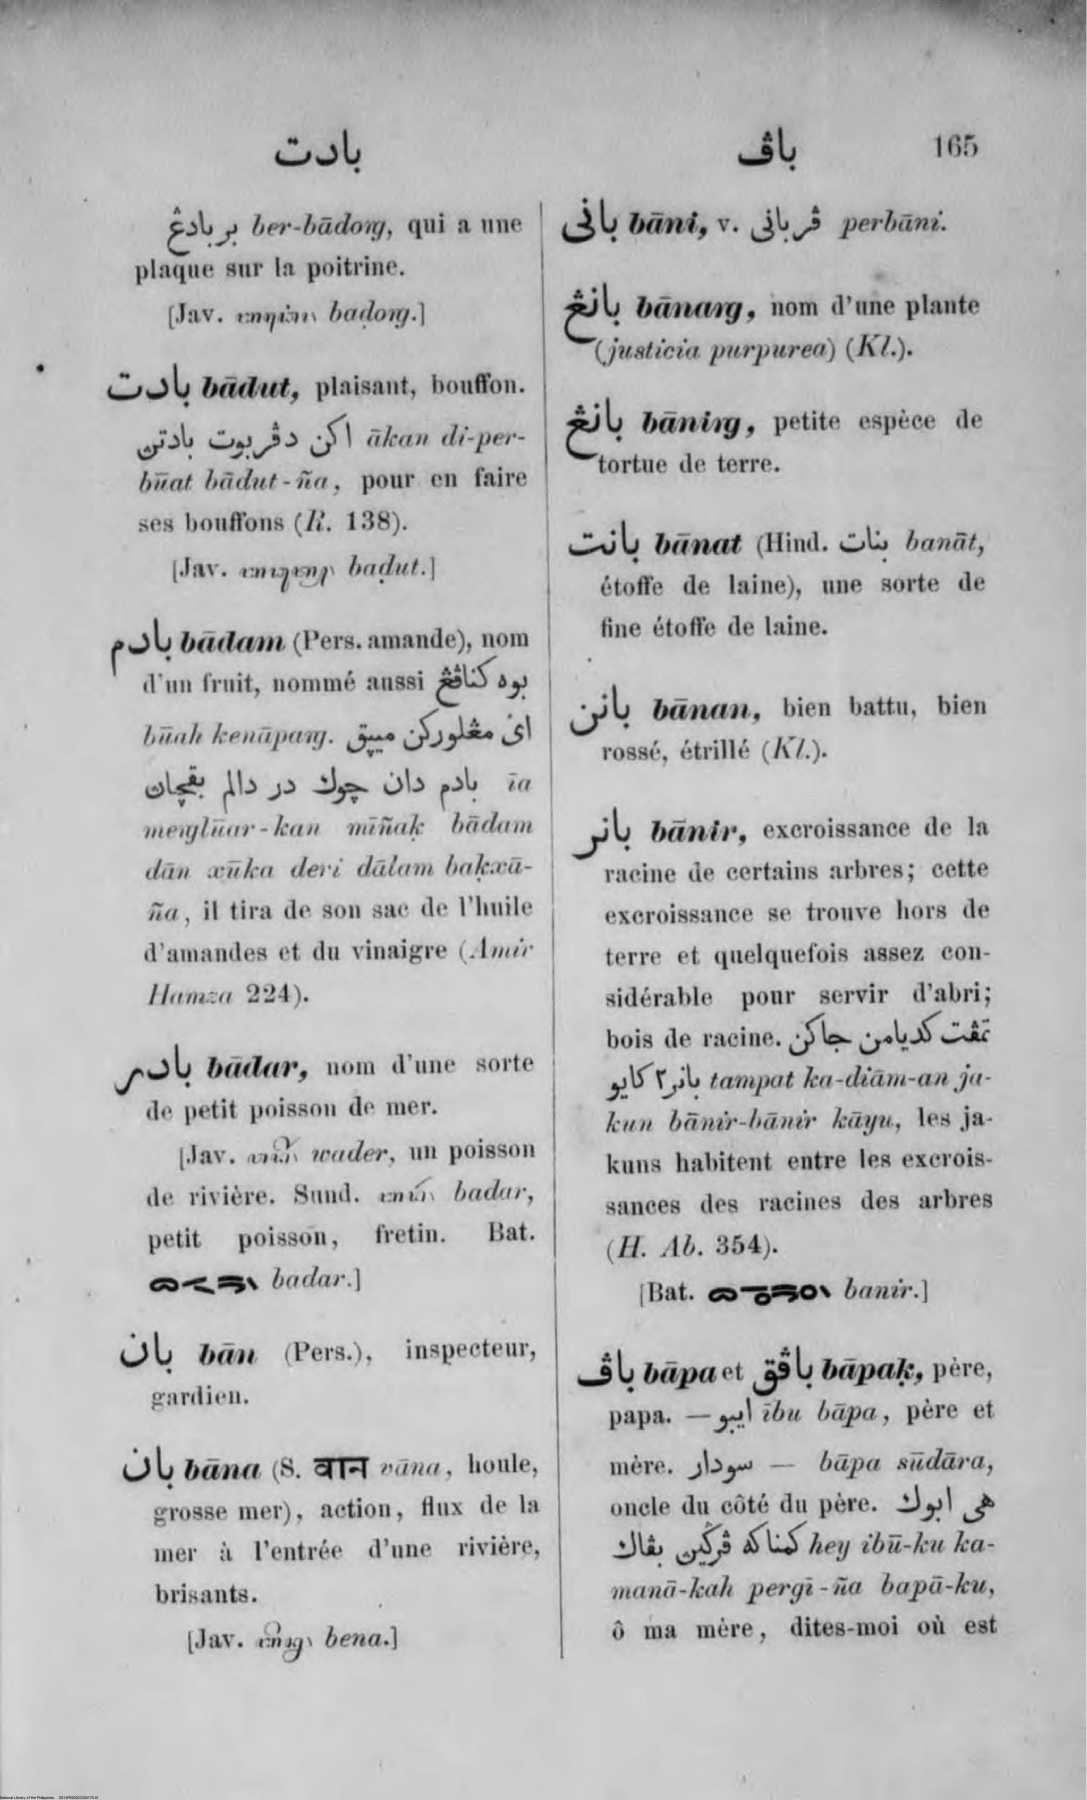 بادت
باڤ
165
بربادڠ ber-bādoƞg, qui a une
plaque sur la poitrine.
[Jav. baḍoƞg.]
بادت bādut, plaisant, bouffon.
اكن دڤربوت بادتڽ ākan di-per-
būat bādut-ña, pour en faire
ses bouffons (R. 138).
[Jav. baḍut.]
بادم bādam (Pers. amande), nom
d'un fruit, nommé aussi بوه كناڤڠ
būah kenāpaƞg. اي مڠلوركن ميڽق
بادم دان چوك در دالم بقچاڽ īa
meƞglūar-kan mīñaḳ bādam
dān xūka deri dālam baḳxā-
ña, il tira de son sac de l'huile
d'amandes et du vinaigre (Amir
Hamza 224).
بادر bādar, nom d'une sorte
de petit poisson de mer.
[Jav. wader, un poisson
de rivière. Sund. badar,
petit poisson, fretin. Bat.
badar.]
بان bān (Pers.), inspecteur,
gardien.
بان bāna (S. वान vāna, houle,
grosse mer), action, flux de la
mer à l'entrée d'une rivière,
brisants.
[Jav. bena.]
بانى bāni, v. ڤربانى perbāni.
بانڠ bānaƞg, nom d'une plante
(justicia purpurea) (Kl.).
بانڠ bāniƞg, petite espèce de
tortue de terre.
بانت bānat (Hind. بنات banāt,
étoffe de laine), une sorte de
fine étoffe de laine.
بانن bānan, bien battu, bien
rossé, étrillé (Kl.).
بانر bānir, excroissance de la
racine de certains arbres; cette
excroissance se trouve hors de
terre et quelquefois assez con-
sidérable pour servir d'abri;
bois de racine. تمڤت كديامن جاكن
بانر٢ كايو tampat ka-diām-an ja-
kun bānir-bānir kāyu, les ja-
kuns habitent entre les excrois-
sances des racines des arbres
(H. Ab. 354).
[Bat. banir.]
باڤ bāpa et باڤق bāpaḳ, père,
papa. — ايبو ību bāpa, père et
mère. سودار — bāpa sūdāra,
oncle du côté du père. هى ابوك
كمناكه ڤرݢين بڤاك hey ibū-ku ka-
manā-kah pergī-ña bapā-ku,
ô ma mère, dites-moi où est